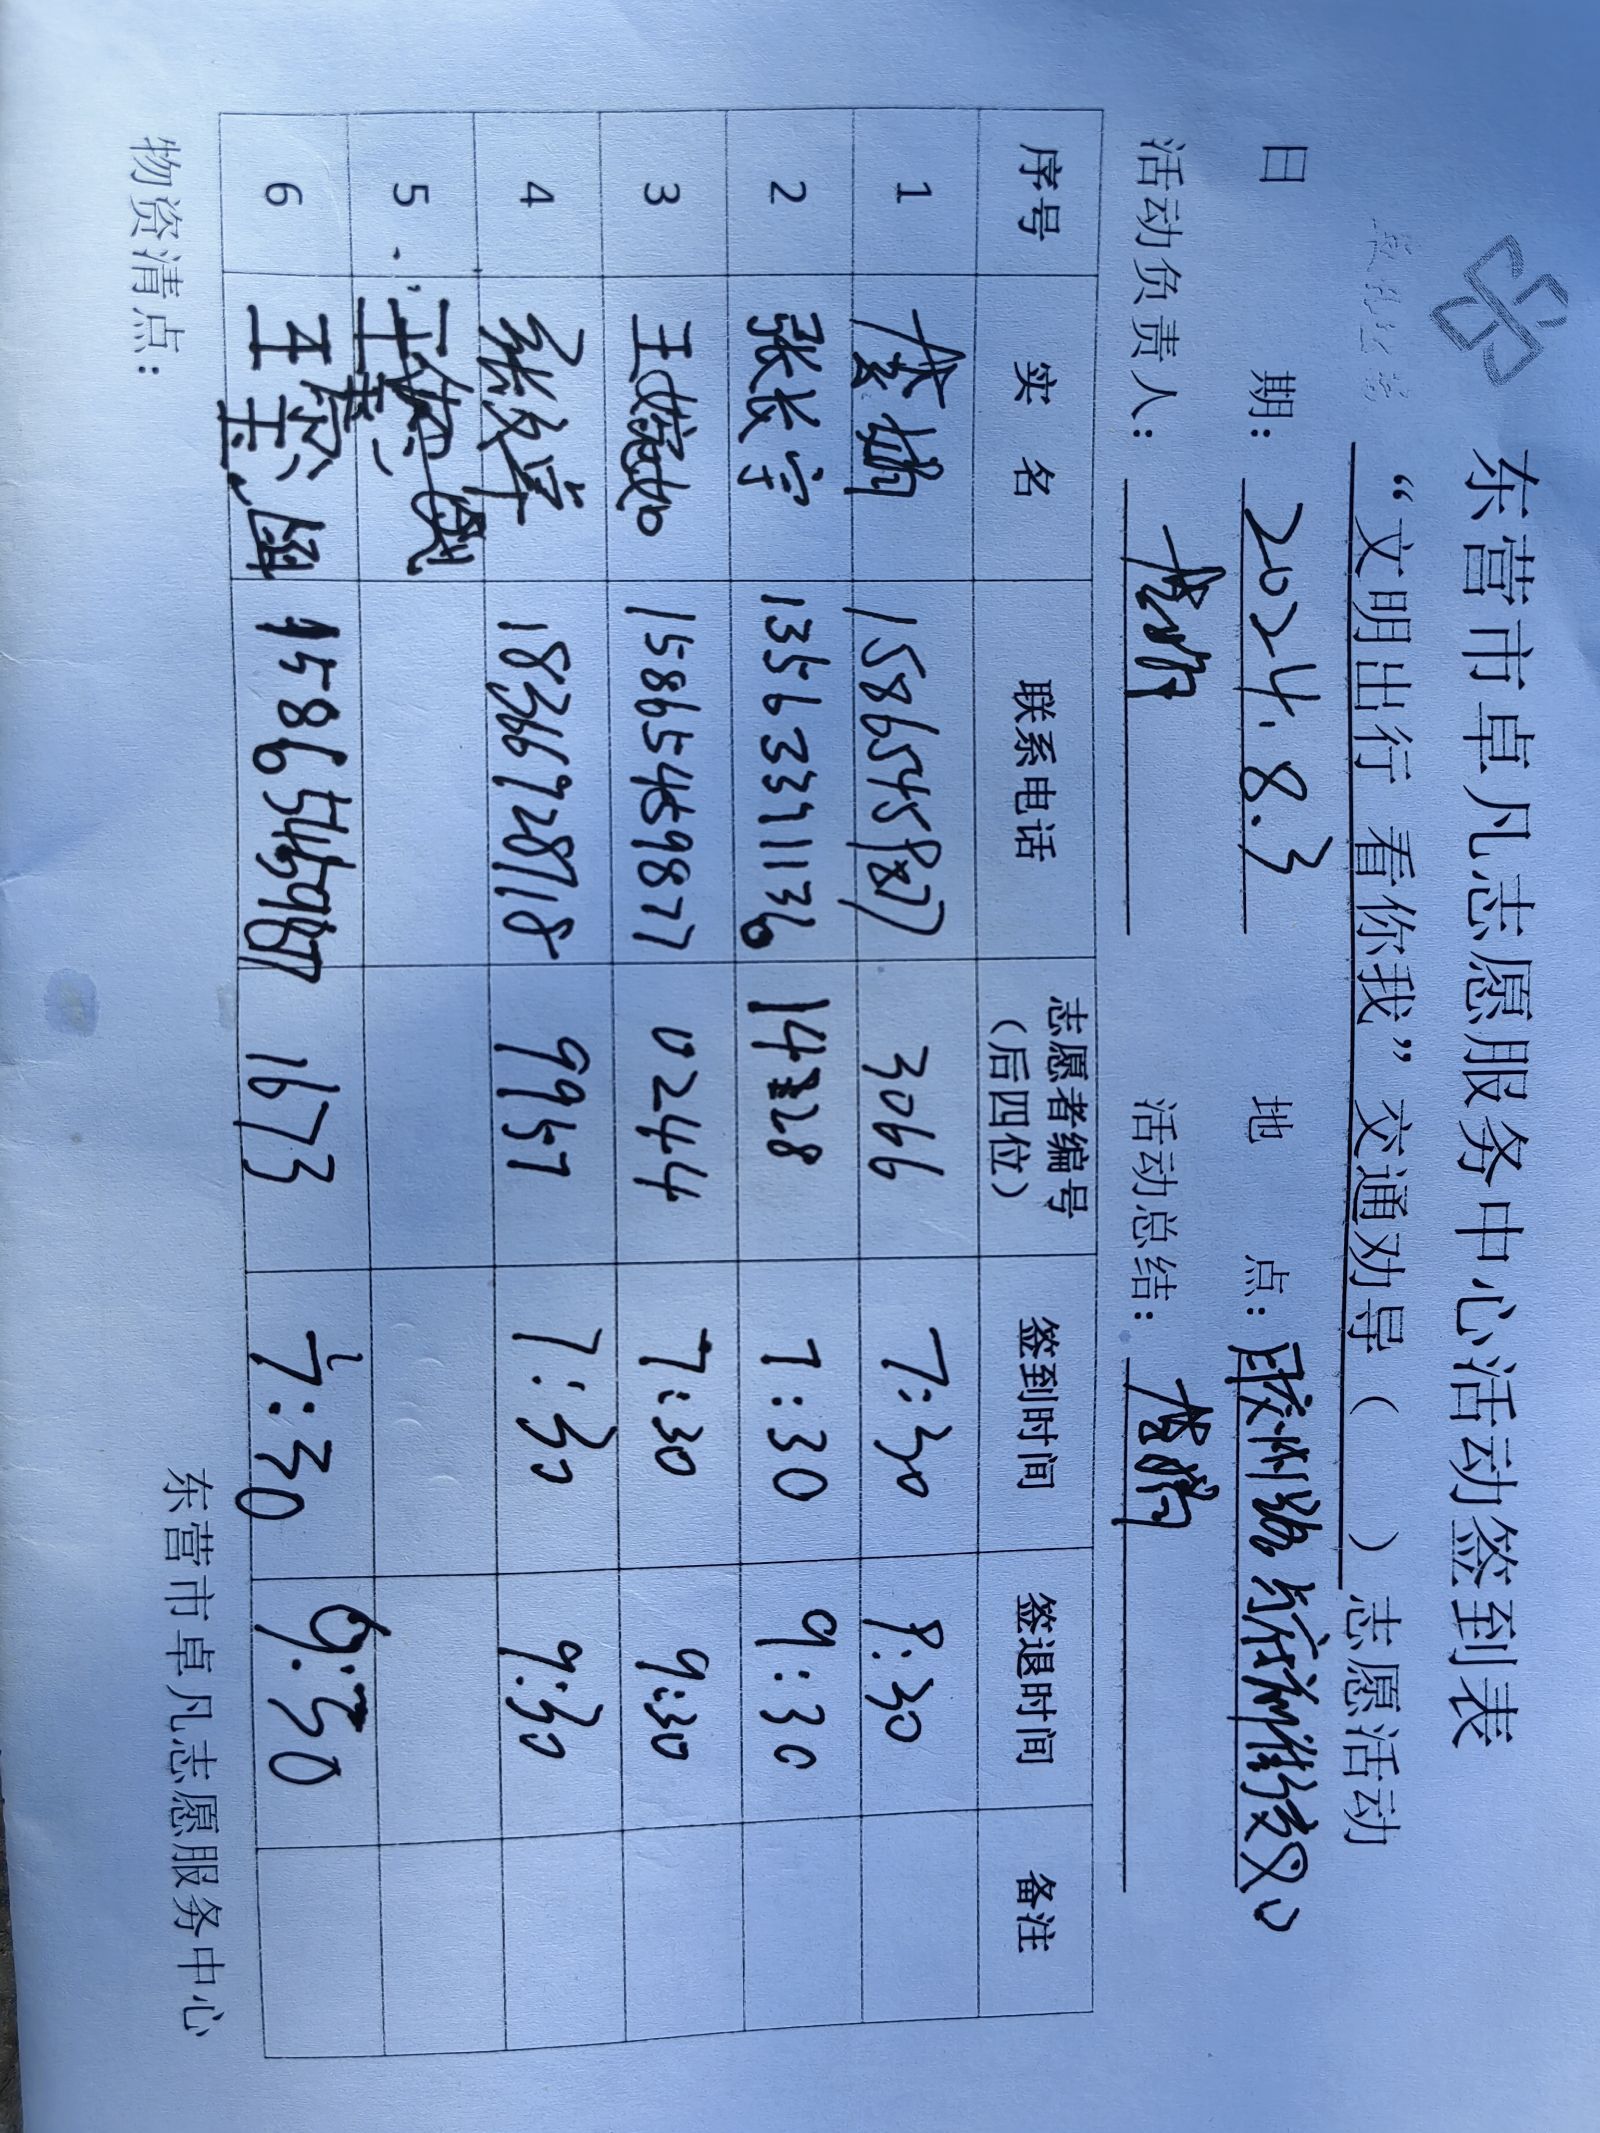 东营市卓凡志愿服务中心活动签到表
“文明出行 看你我”交通劝导（ ）志愿活动
日 期：2024.8.3 地 点：胶州路与府前街交叉口
活动负责人： 活动总结：
序号 实 名 联系电话 志愿者编号（后四位） 签到时间 签退时间 备注
1 15865459877 3066 7:30 9:30
2 张长宇 1428 7:30 9:30
3 王婉如 15865459877 0244 7:30 9:30
4 18366728718 9957 7:30 9:30
5
6 王 15865459877 1673 7:30 9:30
物资清点：
东营市卓凡志愿服务中心